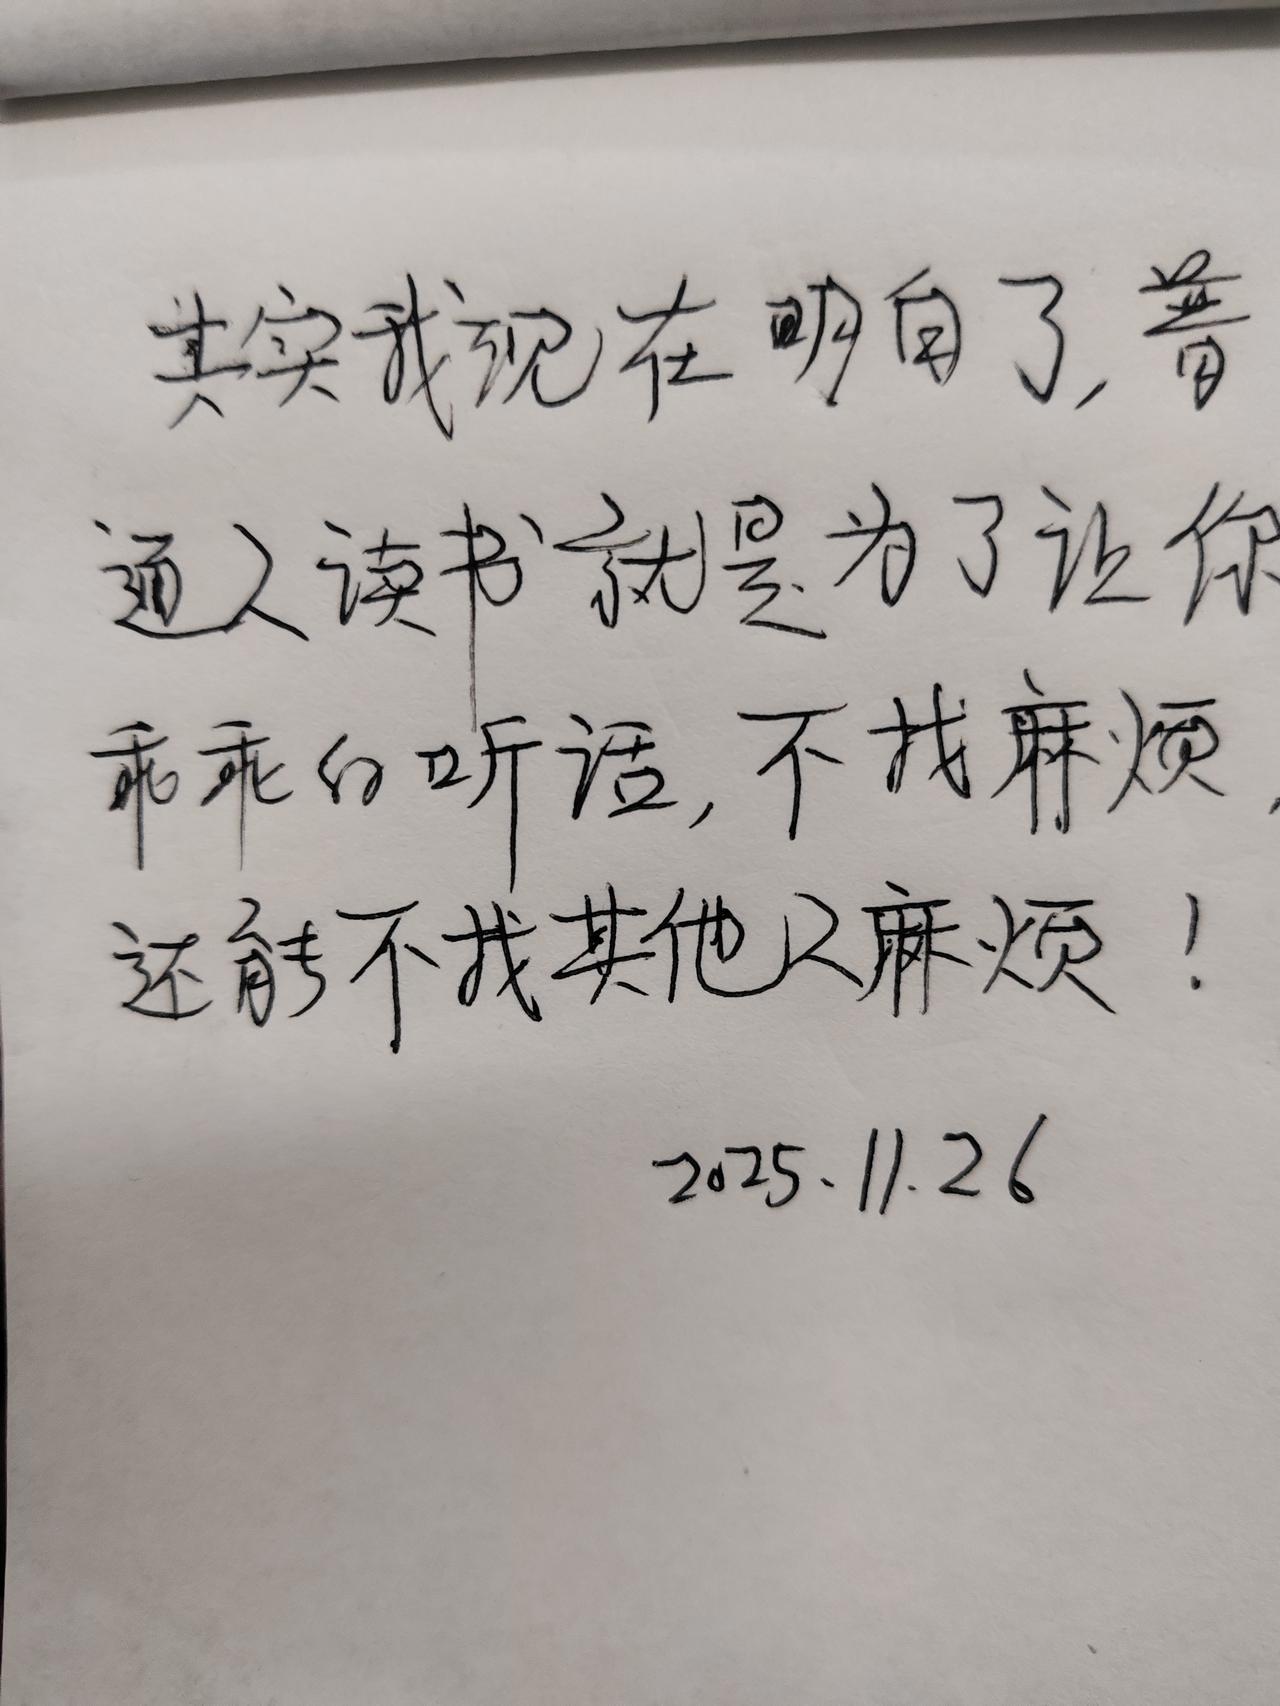 其实我现在明白了,普
通人读书就是为了让你
乖乖的听话,不找麻烦,
还能不找其他人麻烦!
2025.11.26